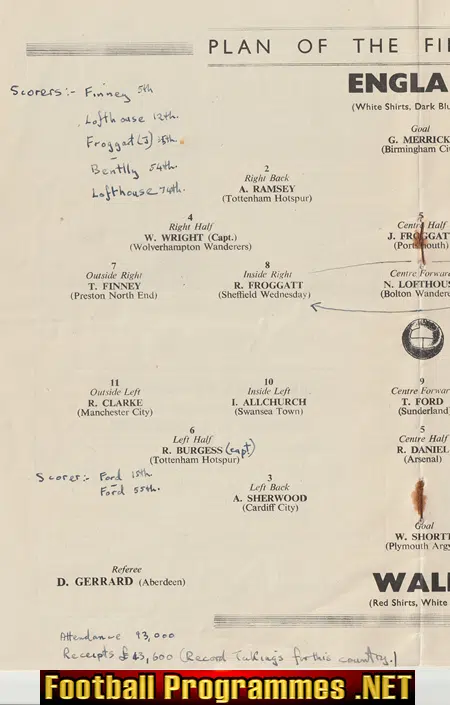 PLAN OF THE FI
ENGLA
(White Shirts, Dark Blu
Scorers:- Finney 5th
Lofthouse 12th.
Froggatt (J) 15th.
Bentlly 54th.
Lofthouse 74th.
Goal
G. MERRICK
(Birmingham City
2
Right Back
A. RAMSEY
(Tottenham Hotspur)
4
Right Half
W. WRIGHT (Capt.)
(Wolverhampton Wanderers)
5
Centre Half
J. FROGGAT
(Portsmouth)
7
Outside Right
T. FINNEY
(Preston North End)
8
Inside Right
R. FROGGATT
(Sheffield Wednesday)
Centre Forward
N. LOFTHOUS
(Bolton Wandere
11
Outside Left
R. CLARKE
(Manchester City)
10
Inside Left
I. ALLCHURCH
(Swansea Town)
9
Centre Forwar
T. FORD
(Sunderland)
6
Left Half
R. BURGESS (capt)
(Tottenham Hotspur)
5
Centre Half
R. DANIEL
(Arsenal)
Scorer:- Ford 15th.
Ford 55th.
3
Left Back
A. SHERWOOD
(Cardiff City)
Goal
W. SHORT
(Plymouth Argy
Referee
D. GERRARD (Aberdeen)
WAL
(Red Shirts, White
Attendance 93,000
Receipts £43,600 (Record Takings for this country.)
Football Programmes .NET